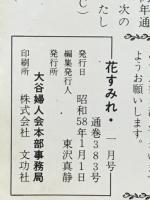 年通
次の
たし
C)
ようお願いします。
花すみれ・一月号
通巻383号
発行日　昭和58年1月1日
編集発行人　東沢真静
発行所　大谷婦人会本部事務局
印刷所　株式会社　文功社